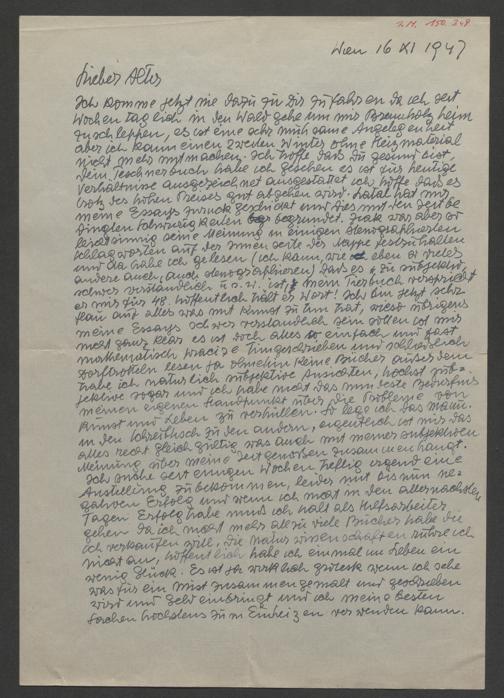 I.N. 150.248
Wien 16 XI 1947
Lieber Alter
Ich komme jetzt nie dazu zu Dir zu fahren da ich seit
Wochen täglich in den Wald gehe um mir Brennholz heim
zu schleppen, es ist eine sehr mühsame Angelegenheit
aber ich kann einen zweiten Winter ohne Heizmaterial
nicht mehr mitmachen. Ich hoffe dass du gesund bist,
Dein Teschnerbuch habe ich gesehen es ist für heutige
Verhältnisse ausgezeichnet ausgestattet ich hoffe dass es
trotz des hohen Preises gut abgehen wird. hat mir
meine Essays zurück geschickt und dies mit den zeitbe
dingten Schwierigkeiten begründet. war aber so
leichtsinnig seine Meinung in einigen stenografierten
Schlagworten auf der innen seite der Mappe festzuhalten
und da habe ich gelesen (ich kann, wie eben so vieles
andere auch, auch stenografieren) dass es zu subjektiv
schwer verständlich u.s.w. ist, mein Tierbuch verspricht
er mir für 48. hoffentlich hält er Wort! Ich bin jetzt sehr
flau auf alles was mit Kunst zu tun hat, wieso übrigens
meine Essays schwer verständlich sein sollen ist mir
nicht ganz klar es ist doch alles so einfach und fast
mathematisch präzise hingeschrieben und schliesslich
Dorftrotteln lesen ja ohnehin keine Bücher ausserdem
habe ich natürlich subjektive Ansichten, höchst sub-
jektive sogar und ich habe nicht das mindeste Bedürfnis
meinen eigenen Standpunkt über die Probleme von
Kunst und Leben zu verhüllen. So lege ich das Manu.
in den Schreibtisch zu den andern, eigentlich ist mir das
alles recht gleichgültig was auch mit meiner subjektiven
Meinung über meine Zeitgenossen zusammenhängt.
Ich suche seit einigen Wochen heftig irgend eine
Anstellung zu bekommen, leider mit bis nun ne-
gativen Erfolg und wenn ich nicht in den allernächsten
Tagen Erfolg habe muss ich halt als Hilfsarbeiter
gehen da ich nicht mehr allzu viele Bücher habe die
ich verkaufen will. Die Naturwissenschaften rühre ich
nicht an, hoffentlich habe ich einmal im Leben ein
wenig Glück. Es ist ja wirklich wenn ich sehe
was für ein Mist zusammengemalt und geschrieben
wird und Geld einbringt und ich meine besten
Sachen höchstens zum Einheizen verwenden kann.